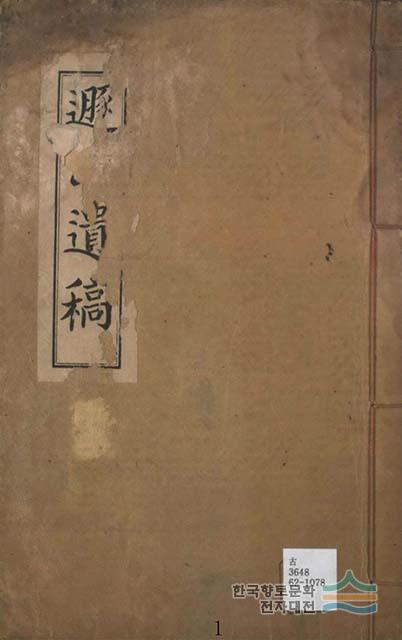 遯
遺
稿
古
3648
62-1078
한국향토문화
전자대전
1